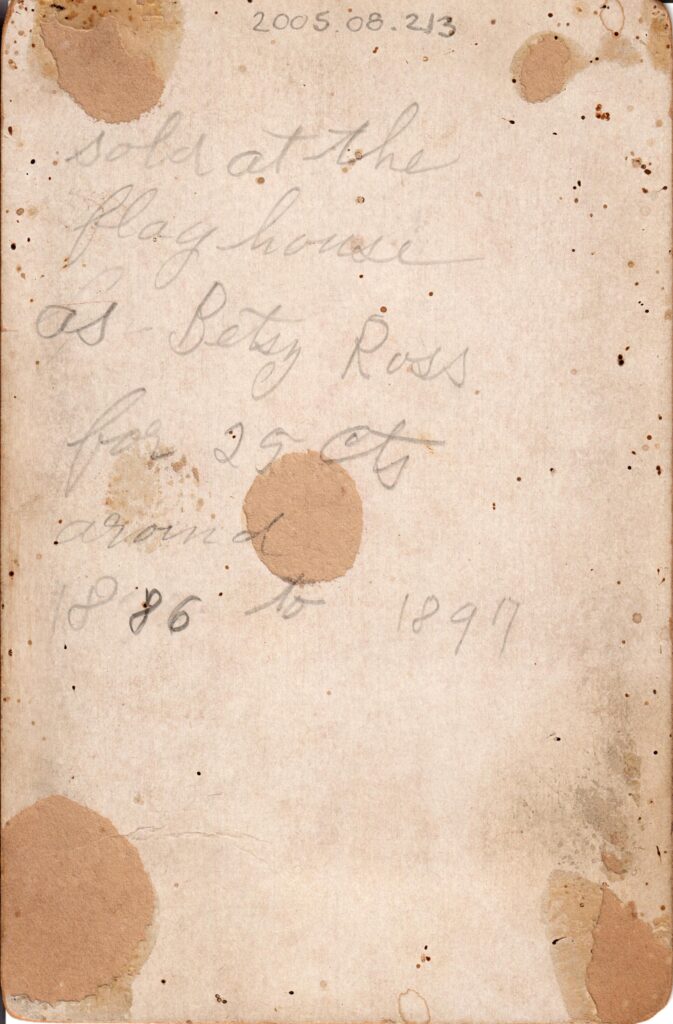 2005.08.213
sold at the
flag house
as Betsy Ross
for 25 cts
around
1886 to 1897